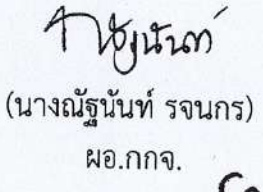 ณัฐนันท์
(นางณัฐนันท์ รจนกร)
ผอ.กกจ.